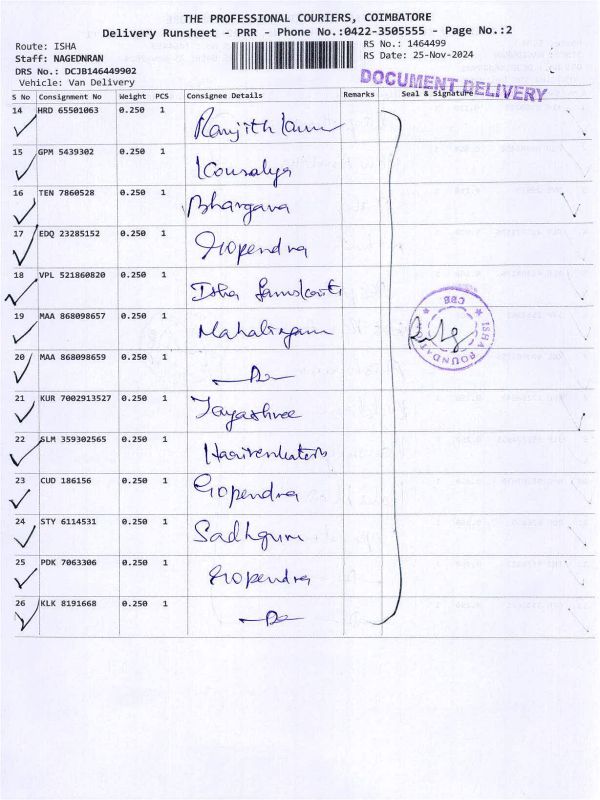 THE PROFESSIONAL COURIERS, COIMBATORE
Delivery Runsheet - PRR - Phone No.:0422-3505555 - Page No.:2
Route: ISHA
RS No.: 1464499
Staff: NAGEDNRAN
RS Date: 25-Nov-2024
DRS No.: DCJB146449902
Vehicle: Van Delivery
DOCUMENT DELIVERY
S No Consignment No Weight PCS Consignee Details Remarks Seal & Signature
14 HRD 65501063 0.250 1 Ranjith
15 GPM 5439302 0.250 1 Kousalya
16 TEN 7860528 0.250 1 Bhargava
17 EDQ 23285152 0.250 1 Gopendra
18 VPL 521860820 0.250 1 Isha Samskriti
19 MAA 868098657 0.250 1 Mahalingam
20 MAA 868098659 0.250 1 Do
21 KUR 7002913527 0.250 1 Jayashree
22 SLM 359302565 0.250 1
23 CUD 186156 0.250 1 Gopendra
24 STY 6114531 0.250 1 Sadhguru
25 PDK 7063306 0.250 1 Gopendra
26 KLK 8191668 0.250 1 Do
ISHA FOUNDATION
CBE